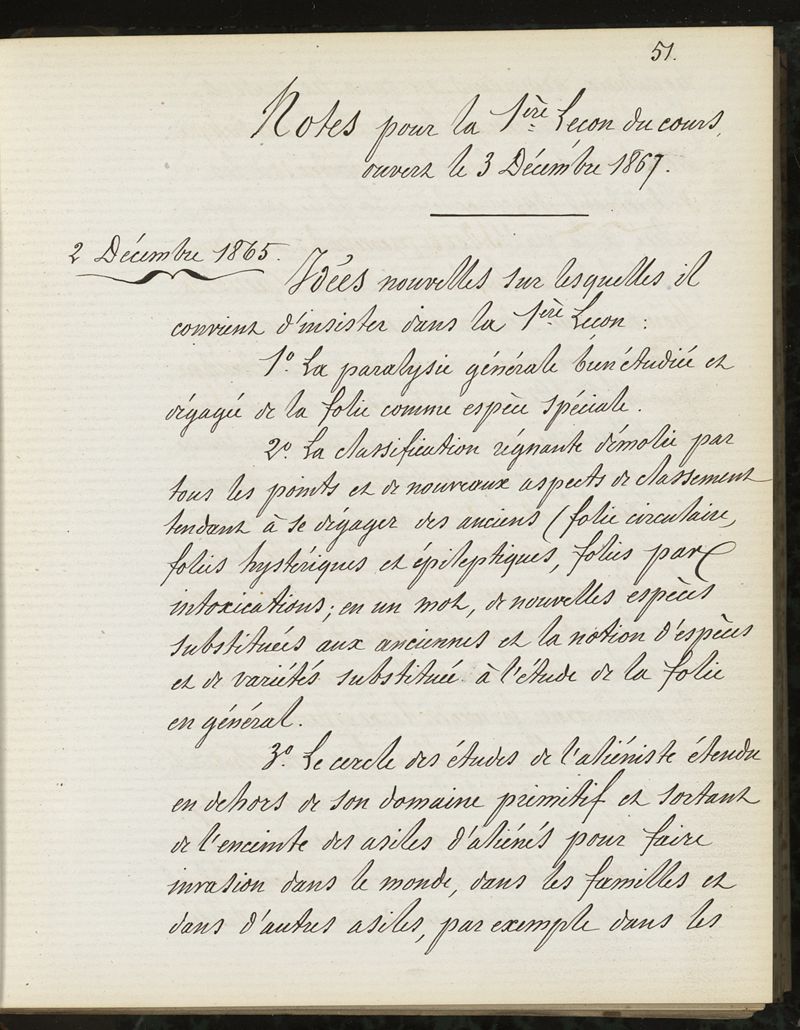 51.
Notes pour la 1ère Leçon du cours,
ouvert le 3 Décembre 1867.
2 Décembre 1865.
Idées nouvelles sur lesquelles il
convient d'insister dans la 1ère Leçon :
1o. La paralysie générale bien étudiée et
dégagée de la folie comme espèce spéciale.
2o. La classification régnante démolie par
tous les points et de nouveaux aspects de classement
tendant à se dégager des anciens (folie circulaire,
folies hystériques et épileptiques, folies par
intoxications; en un mot, de nouvelles espèces
substituées aux anciennes et la notion d'espèces
et de variétés substituée à l'étude de la folie
en général.
3o. Le cercle des études de l'aliéniste étendu
en dehors de son domaine primitif et sortant
de l'enceinte des asiles d'aliénés pour faire
invasion dans le monde, dans les familles et
dans d'autres asiles, par exemple dans les